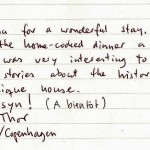 for a wonderful stay.
the home-cooked dinner a
was very interesting to
stories about the histor
ique house.
syn! (A bientôt)
Thor
/Copenhagen